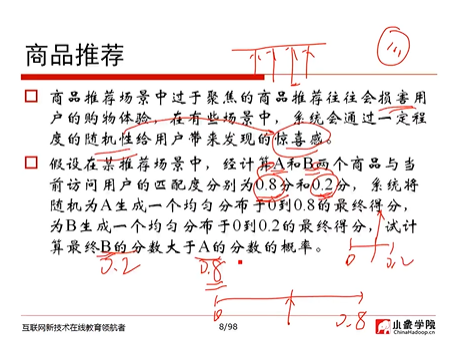 商品推荐
商品推荐场景中过于聚焦的商品推荐往往会损害用
户的购物体验，在有些场景中，系统会通过一定程
度的随机性给用户带来发现的惊喜感。
假设在某推荐场景中，经计算A和B两个商品与当
前访问用户的匹配度分别为0.8分和0.2分，系统将
随机为A生成一个均匀分布于0到0.8的最终得分，
为B生成一个均匀分布于0到0.2的最终得分，试计
算最终B的分数大于A的分数的概率。
0 0.2
0.2 0.8
0 0.8
互联网新技术在线教育领航者
8/98
小象学院
ChinaHadoop.cn